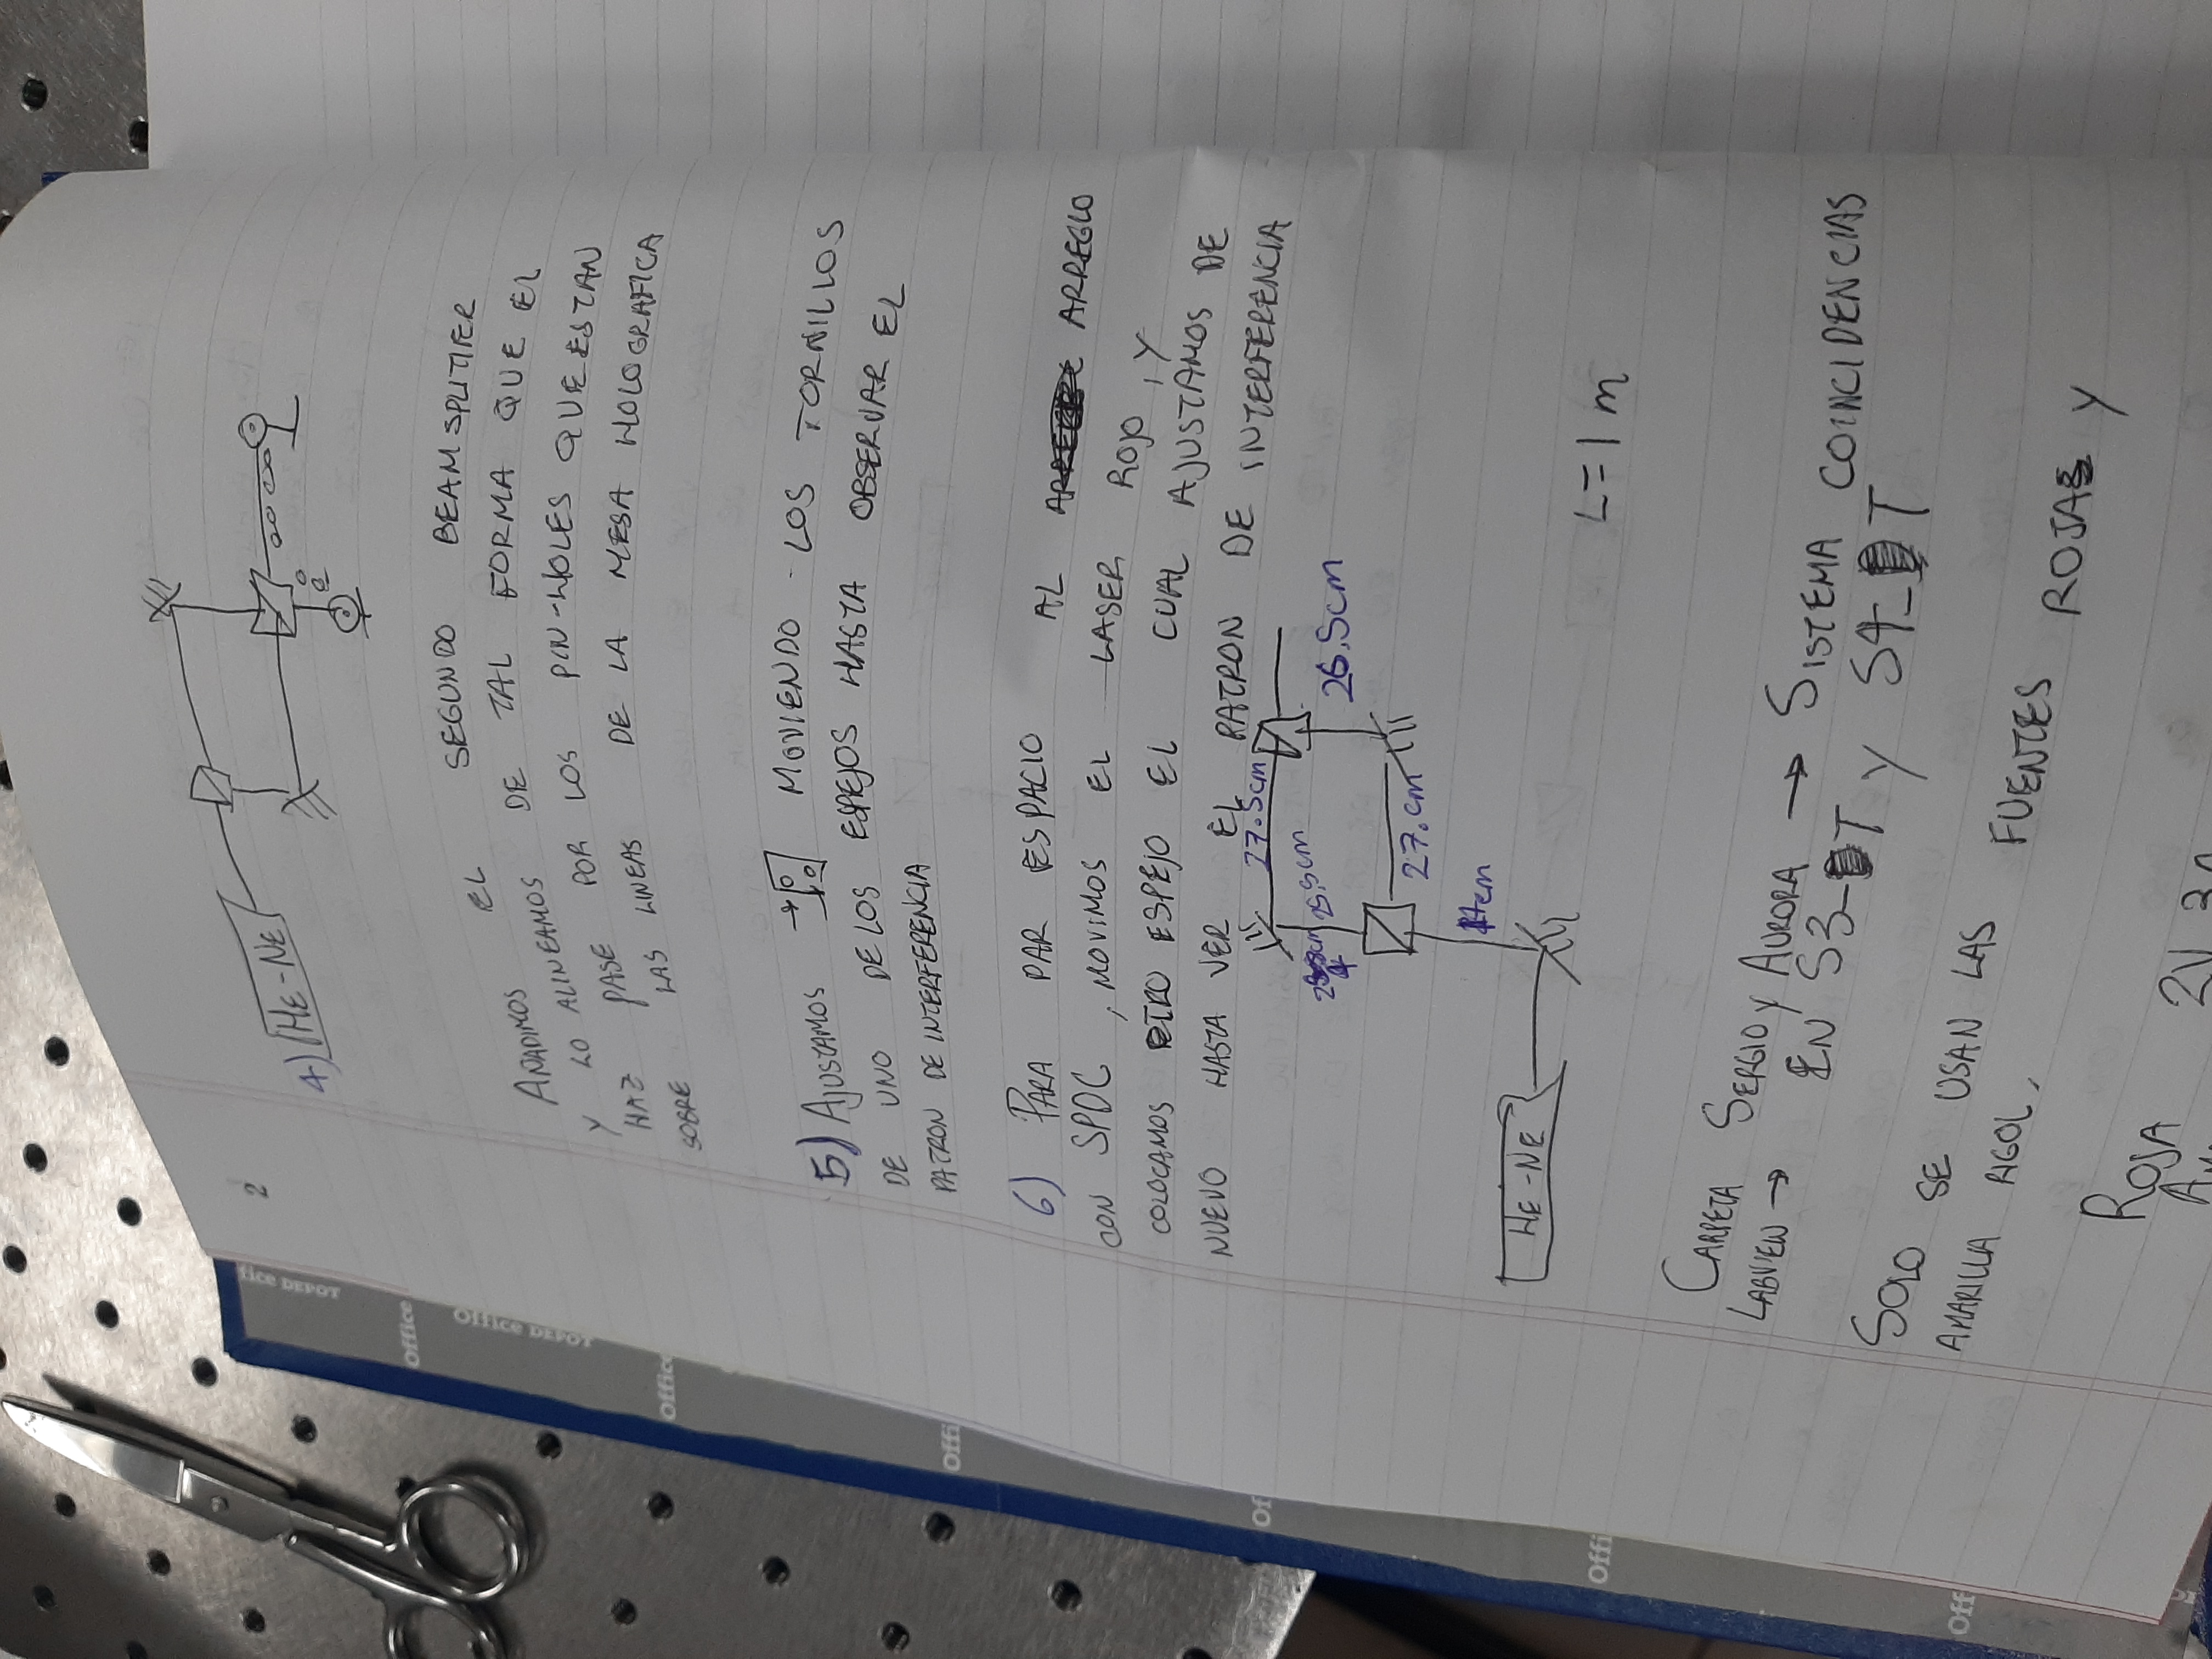 2
4) HE-NE
AÑADIMOS EL SEGUNDO BEAM SPLITTER
Y LO ALINEAMOS DE TAL FORMA QUE EL
HAZ PASE POR LOS PIN-HOLES QUE ESTAN
SOBRE LAS LINEAS DE LA MESA HOLOGRAFICA
5) AJUSTAMOS → MOVIENDO LOS TORNILLOS
DE UNO DE LOS ESPEJOS HASTA OBSERVAR EL
PATRON DE INTERFERENCIA
6) PARA DAR ESPACIO AL ARREGLO
CON SPDC, MOVIMOS EL LASER ROJO, Y
COLOCAMOS OTRO ESPEJO EL CUAL AJUSTAMOS DE
NUEVO HASTA VER EL PATRON DE INTERFERENCIA
27.5cm
25.5cm
26.5cm
27.cm
HE-NE
L=1 m
CARPETA SERGIO Y AURORA → SISTEMA COINCIDENCIAS
LABVIEW → EN S3_DT Y S4_DT
SOLO SE USAN LAS FUENTES ROJAS Y
AMARILLA RIGOL.
ROJA 2V
Office DEPOT
Office
Office DEPOT
Office
Offi
Of
Offi
Off